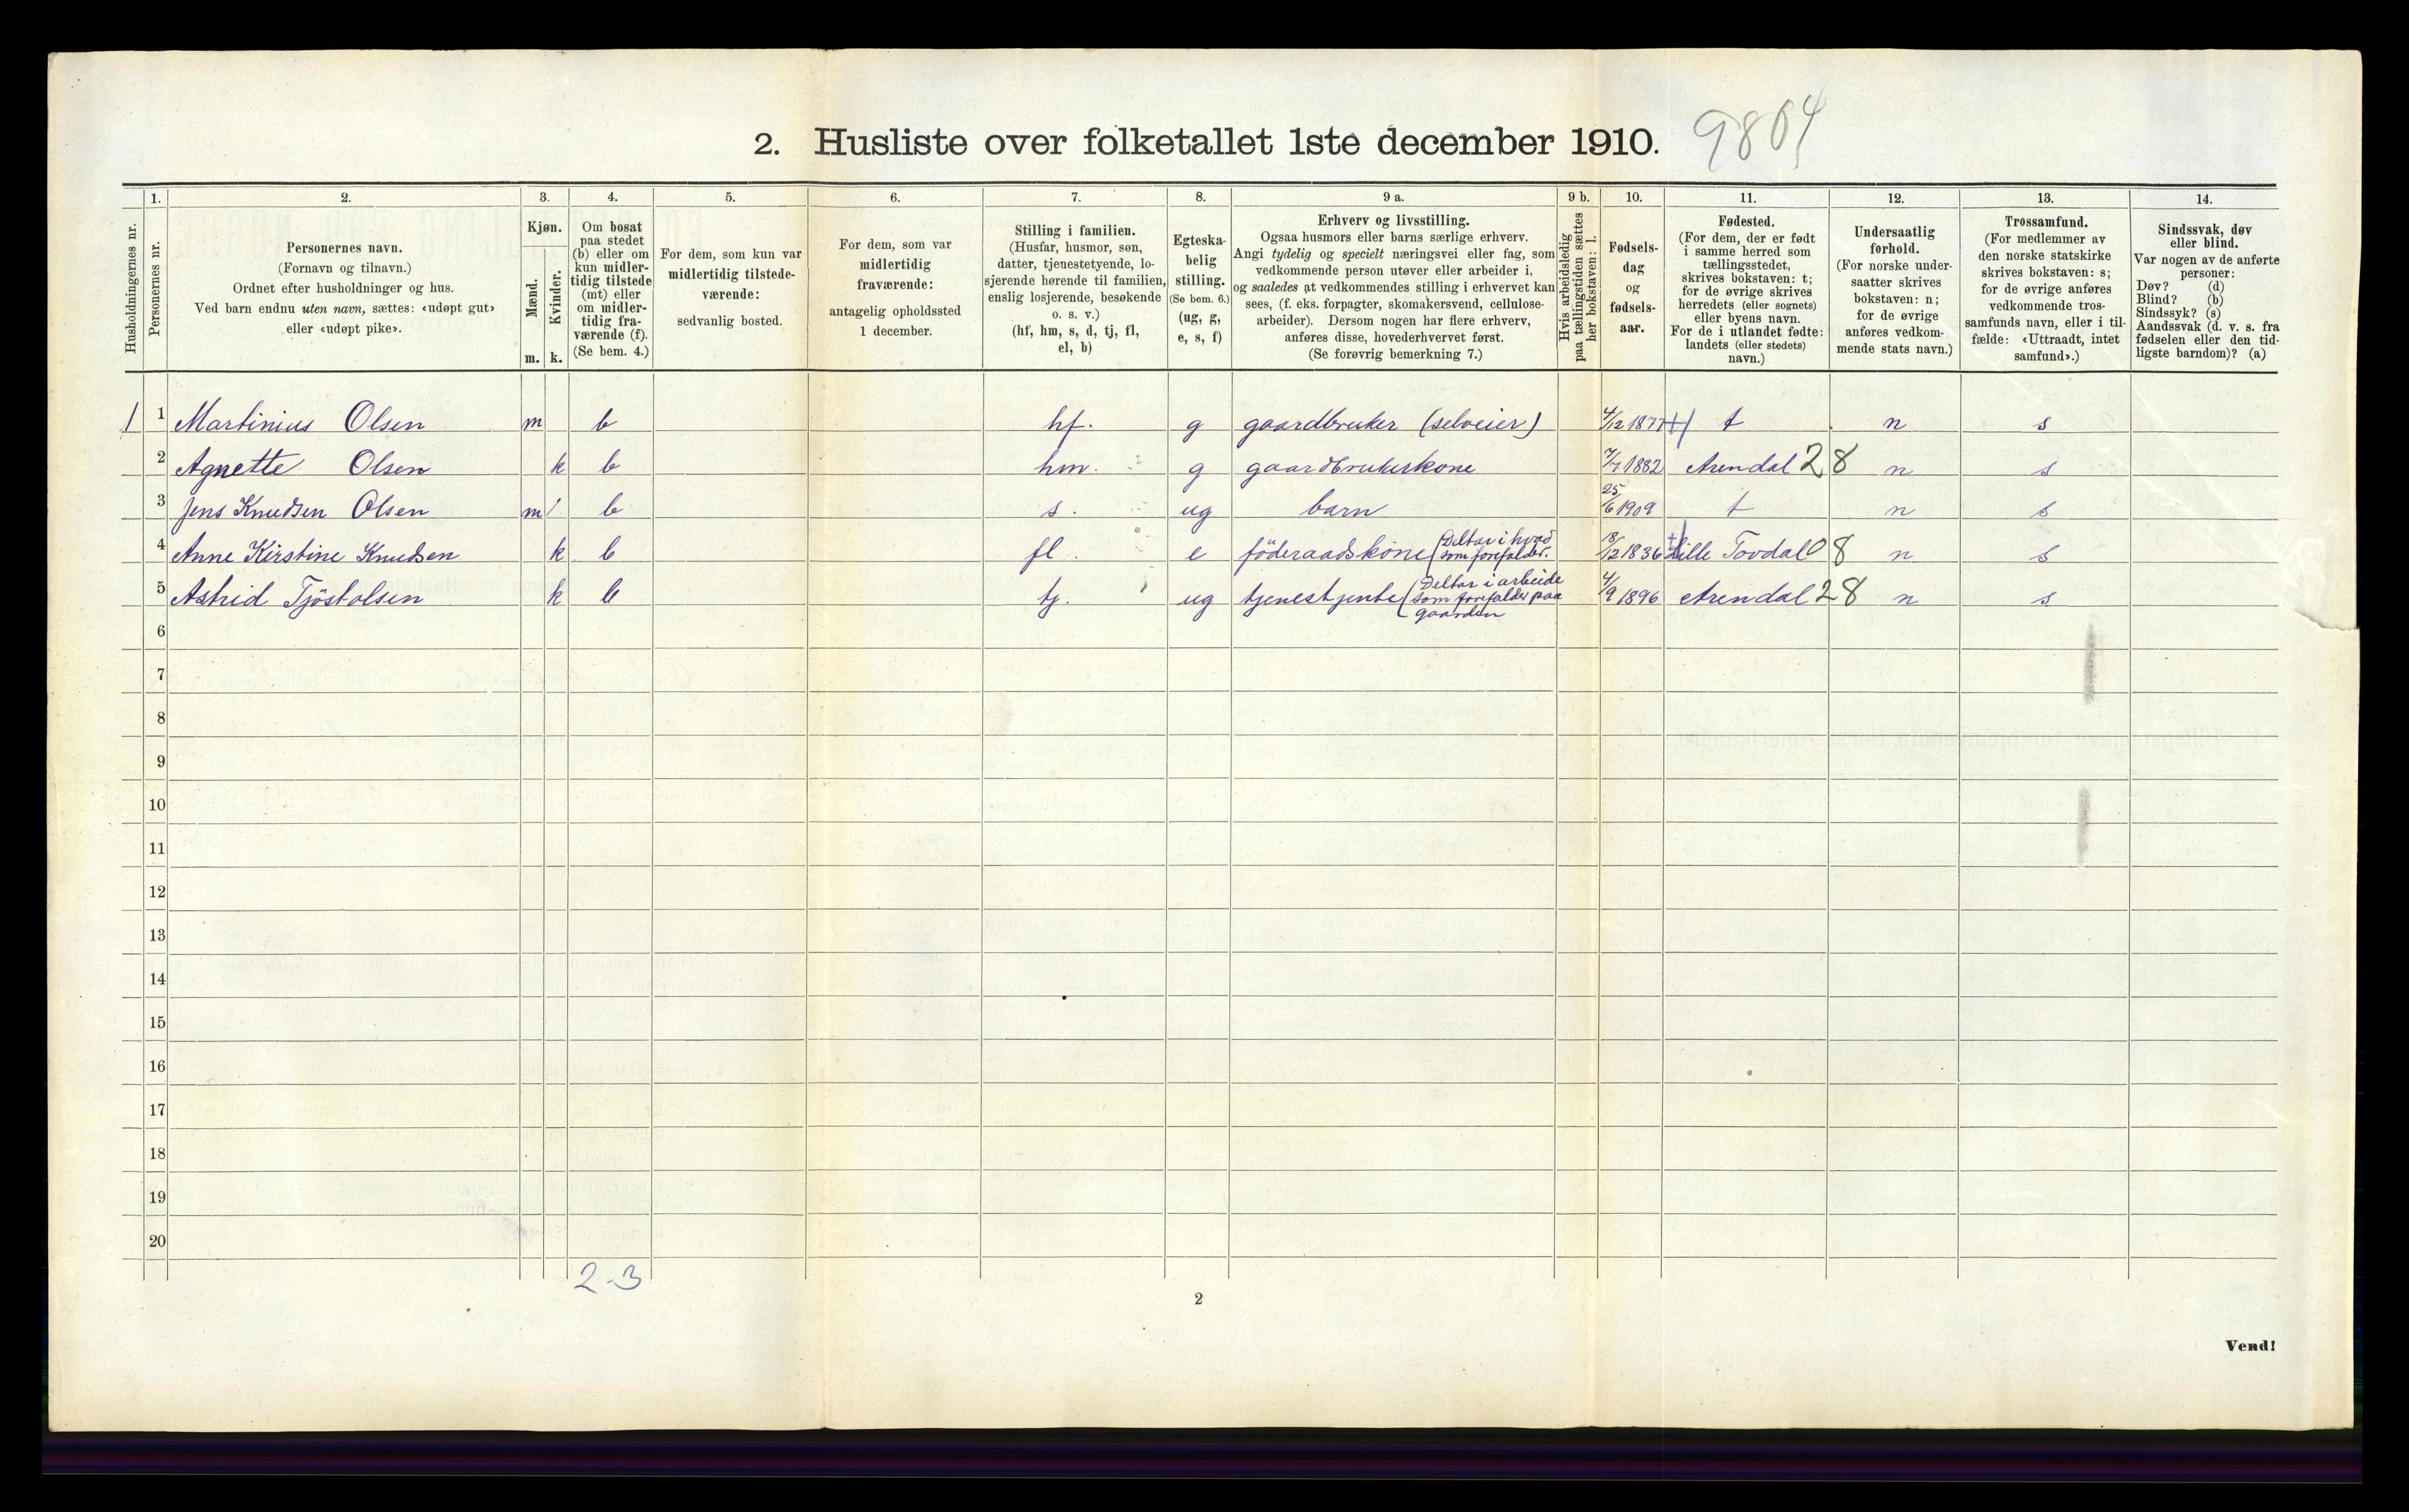 2. Husliste over folketallet 1ste december 1910. 9804
Husholdningernes nr.
1.
Personernes nr.
2.
Personernes navn.
(Fornavn og tilnavn.)
Ordnet efter husholdninger og hus.
Ved barn endnu uten navn, sættes: «udøpt gut»
eller «udøpt pike».
3.
Kjøn.
Mænd.
Kvinder.
m. k.
4.
Om bosat
paa stedet
(b) eller om
kun midler-
tidig tilstede
(mt) eller
om midler-
tidig fra-
værende (f).
(Se bem. 4.)
5.
For dem, som kun var
midlertidig tilstede-
værende:
sedvanlig bosted.
6.
For dem, som var
midlertidig
fraværende:
antagelig opholdssted
1 december.
7.
Stilling i familien.
(Husfar, husmor, søn,
datter, tjenestetyende, lo-
sjerende hørende til familien,
enslig losjerende, besøkende
o. s. v.)
(hf, hm, s, d, tj, fl,
el, b)
8.
Egteska-
belig
stilling.
(Se bem. 6.)
(ug, g,
e, s, f)
9 a.
Erhverv og livsstilling.
Ogsaa husmors eller barns særlige erhverv.
Angi tydelig og specielt næringsvei eller fag, som
vedkommende person utøver eller arbeider i,
og saaledes at vedkommendes stilling i erhvervet kan
sees, (f. eks. forpagter, skomakersvend, cellulose-
arbeider). Dersom nogen har flere erhverv,
anføres disse, hovederhvervet først.
(Se forøvrig bemerkning 7.)
9 b.
Hvis arbeidsledig
paa tællingstiden sættes
her bokstaven: l.
10.
Fødsels-
dag
og
fødsels-
aar.
11.
Fødested.
(For dem, der er født
i samme herred som
tællingsstedet,
skrives bokstaven: t;
for de øvrige skrives
herredets (eller sognets)
eller byens navn.
For de i utlandet fødte:
landets (eller stedets)
navn.)
12.
Undersaatlig
forhold.
(For norske under-
saatter skrives
bokstaven: n;
for de øvrige
anføres vedkom-
mende stats navn.)
13.
Trossamfund.
(For medlemmer av
den norske statskirke
skrives bokstaven: s;
for de øvrige anføres
vedkommende tros-
samfunds navn, eller i til-
fælde: «Uttraadt, intet
samfund».)
14.
Sindssvak, døv
eller blind.
Var nogen av de anførte
personer:
Døv? (d)
Blind? (b)
Sindssyk? (s)
Aandssvak (d. v. s. fra
fødselen eller den tid-
ligste barndom)? (a)
1 1 Martinius Olsen m b hf. g gaardbruker (selveier) 4/12 1877 t n s
2 Agnette Olsen k b hm. g gaardbrukerkone 7/7 1882 Arendal 28 n s
3 Jens Knudsen Olsen m b s. ug barn 25/6 1909 t n s
4 Anne Kirstine Knudsen k b fl. e föderaadskone (Deltar i hvad som forefalder. 18/12 1836 Lille Tovdal 08 n s
5 Astrid Tjöstolsen k b tj. ug tjenestjente (Deltar i arbeide som forefalder paa gaarden 4/9 1896 Arendal 28 n s
6
7
8
9
10
11
12
13
14
15
16
17
18
19
20
2-3
2
Vend!